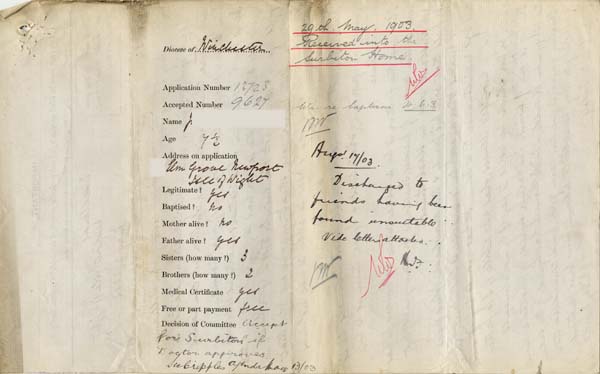 Diocese of Winchester
Application Number 12723
Accepted Number 9627
Name J.
Age 7½
Address on application
Elm Grove Newport
Isle of Wight
Legitimate? Yes
Baptised? No
Mother alive? No
Father alive? Yes
Sisters (how many?) 3
Brothers (how many?) 2
Medical Certificate Yes
Free or part payment free
Decision of Committee Accept
for Surbiton if
Doctor approves
13/03
29th May. 1903.
Received into the
Surbiton Home.
baptism
Augst 17/03.
Discharged to
friends having been
found unsuitable.
Vide letter attached.